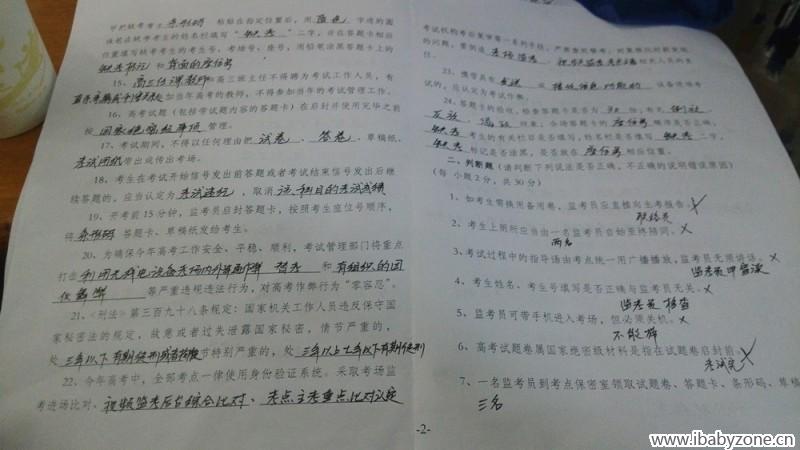 粘贴在指定位置后，用 蓝色 字迹的圆
该考生缺考考生的姓名栏填写“ 缺考 ”二字，并在答题卡相应
位置填写缺考考生的考生号、考场号、座号，用铅笔涂黑答题卡上的
缺考标记 和 背面的座位号
15、高三任课教师和高三班主任不得聘为考试工作人员，有
直系亲属或 加当年高考的教师，不得参加当年的考试管理工作。
16、高考试题（包括学试题内容的答题卡）在启封并使用完毕之前
按 国家绝密级事项 管理。
17、考试期间，不得以任何理由把 试卷 、 答卷 、草稿纸、
考试用纸 带出或传出考场。
18、考生在考试开始信号发出前答题或者考试结束信号发出后继
续答题的，应当认定为 考试违纪 ，取消 该科目的考试成绩
19、开考前15分钟，监考员启封答题卡，按照考生座位号顺序，
将 条形码 答题卡、草稿纸发给考生。
20、为确保今年高考工作安全、平稳、顺利，考试管理部门将重点
打击 利用无线电设备考场内外串通作弊 替考 和 有组织的团
伙舞弊 等严重违规违法行为，对高考作弊行为“零容忍”。
21、《刑法》第三百九十八条规定：国家机关工作人员违反保守国
家秘密法的规定，故意或者过失泄露国家秘密，情节严重的，
处 三年以下有期徒刑或者拘役 节特别严重的，处 三年以上七年以下有期徒刑
22、今年高考中，全部考点一律使用身份验证系统。采取考场监
考进场比对、视频监考后台综合比对、考点主考重点比对认定
23、携带具有 发送 或 接收信息功能的 设备进须考
的，应认定为考试作弊。
24、答题卡的验收，检查答题卡是否为 30 份，有无 倒放 、
反放 、 ；各场答题卡的 座位号 顺序是否正确，
缺考 考生的有关栏目是否填写，姓名栏是否填写 缺考 二字，
缺考 标记是否涂黑，是否放在 座位号 相应位置。
二、判断题（请判断下列说法是否正确，不正确的说明错误原因）
（每 小题2分，共30分）
1、如考生需换用备用卷，监考员应直接向主考报告。×
2、考生上厕所应当由一名监考员自始至终陪同。×
两名
3、考试过程中的指导语由考点统一用广播播放，监考员无须讲话。×
监考员甲宣读
4、考生姓名、考生号填写是否正确与监考员无关。×
监考员检查
5、监考员可带手机进入考场，但必须关机。×
不能带
6、高考试题卷属国家绝密级材料是指在试题卷启封前。×
考试完
7、一名监考员到考点保密室领取试题卷、答题卡、条形码、草稿
三名
-2-
www.ibabyzone.cn